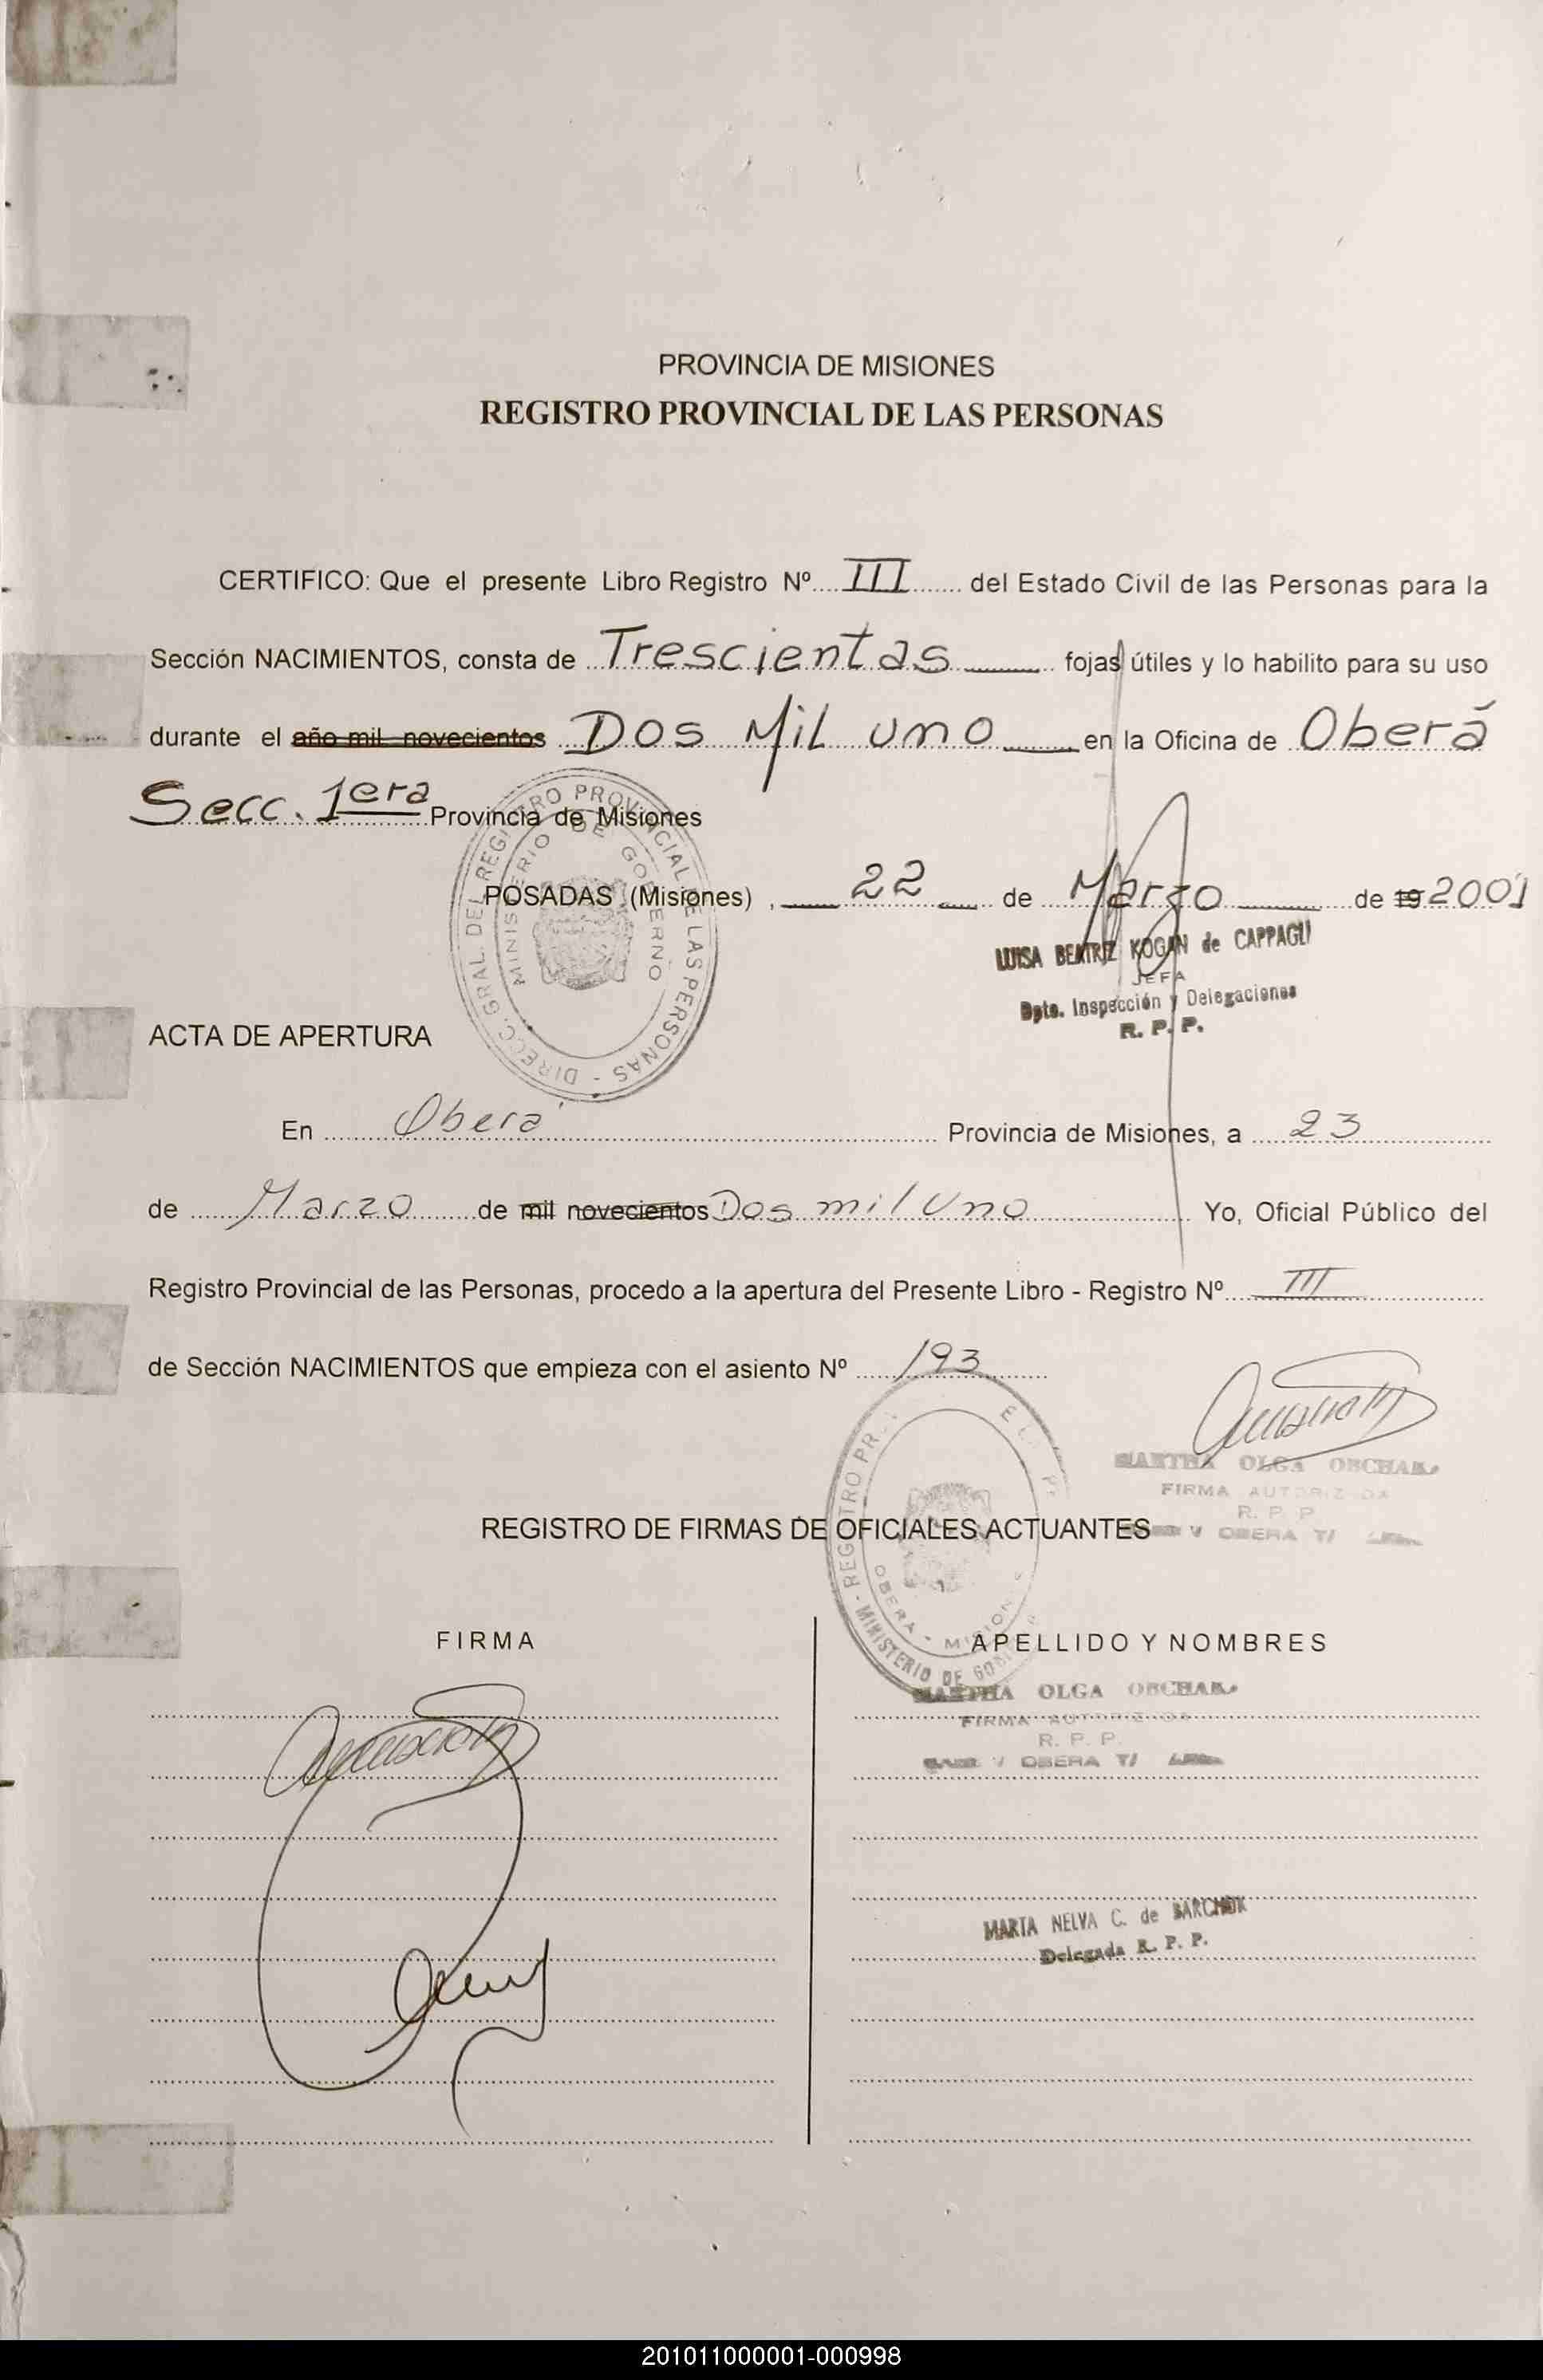 PROVINCIA DE MISIONES
REGISTRO PROVINCIAL DE LAS PERSONAS
CERTIFICO: Que el presente Libro Registro Nº III del Estado Civil de las Personas para la
Sección NACIMIENTOS, consta de Trescientas fojas útiles y lo habilito para su uso
durante el año mil novecientos Dos Mil uno en la Oficina de Oberá
Secc. 1era Provincia de Misiones
DIRECC. GRAL. DEL REGISTRO PROVINCIAL DE LAS PERSONAS -
MINISTERIO DE GOBIERNO
POSADAS (Misiones), 22 de Marzo de 19 2001
LUISA BEATRIZ KOGAN de CAPPAGLI
JEFA
Dpto. Inspección y Delegaciones
R. P. P.
ACTA DE APERTURA
En Oberá Provincia de Misiones, a 23
de Marzo de mil novecientos Dos mil Uno Yo, Oficial Público del
Registro Provincial de las Personas, procedo a la apertura del Presente Libro - Registro Nº III
de Sección NACIMIENTOS que empieza con el asiento Nº 193
MARTHA OLGA
FIRMA AUTORIZADA
R. P. P
OBERA
REGISTRO DE FIRMAS DE OFICIALES ACTUANTES
OBERA - MISIONES
MINISTERIO DE
FIRMA APELLIDO Y NOMBRES
MARTHA OLGA
FIRMA AUTORIZADA
R. P. P.
OBERA
MARTA NELVA C. de
Delegada R. P. P.
201011000001-000998